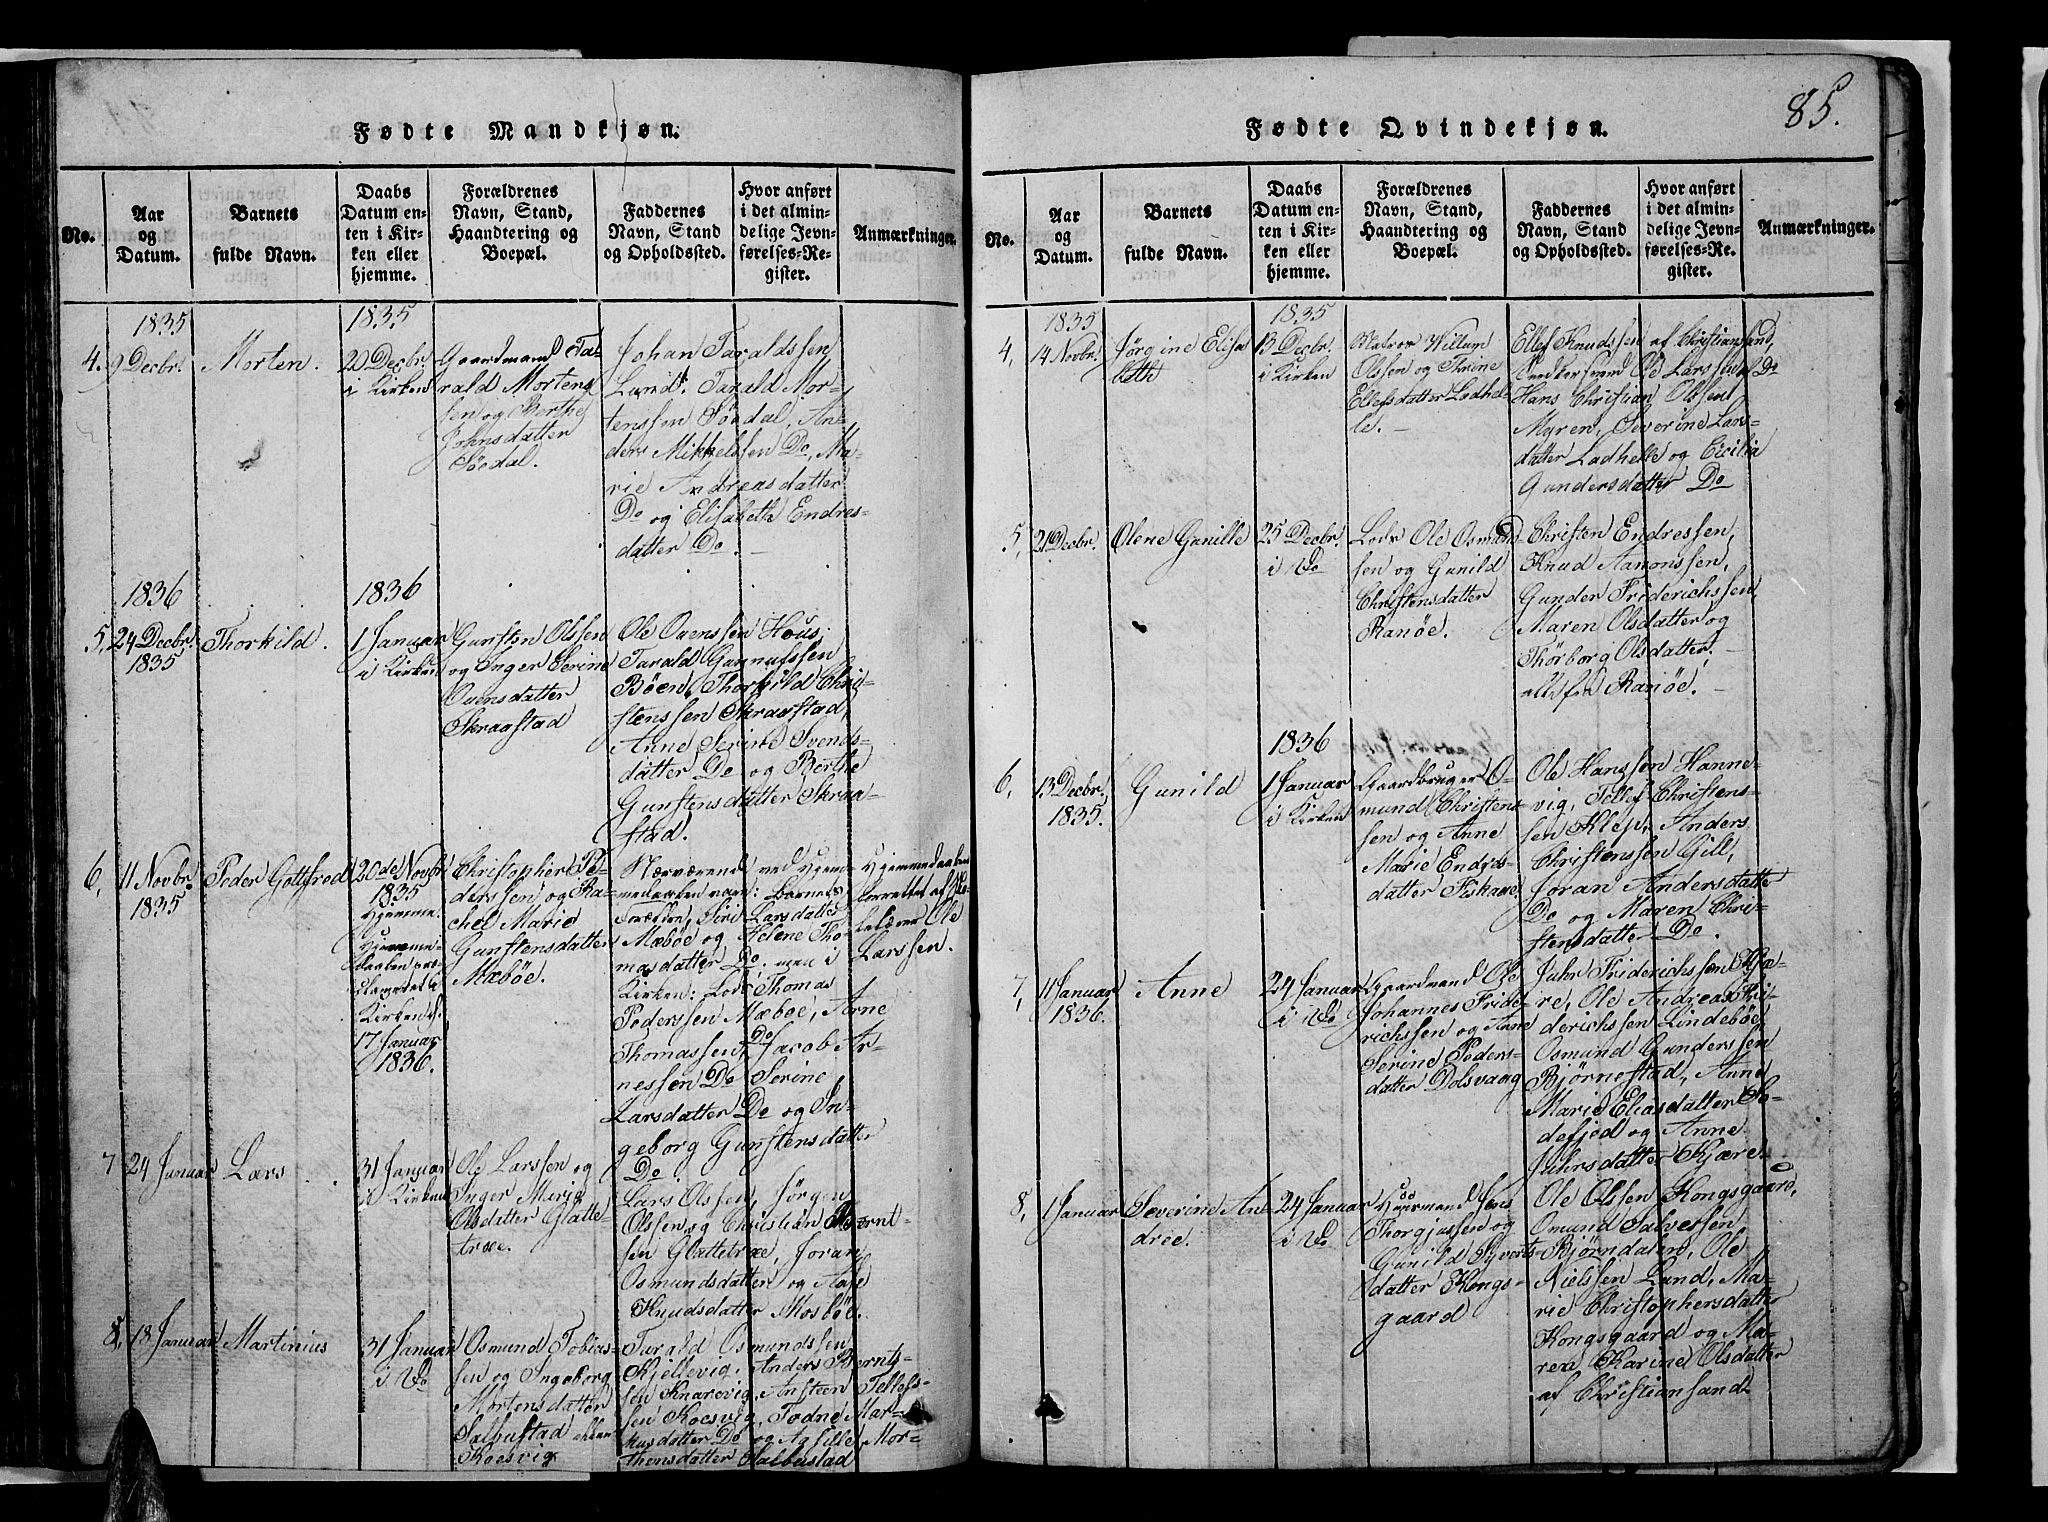 Fødte Mandkjøn.
No.
Aar
og
Datum.
Barnets
fulde Navn.
Daabs
Datum en-
ten i Kir-
ken eller
hjemme.
Forældrenes
Navn, Stand,
Haandtering og
Boepæl.
Faddernes
Navn, Stand
og Opholdssted.
Hvor anført
i det almin-
delige Jevn-
førelses-Re-
gister.
Anmærkninger.
1835
4. 9 Decbr.
Morten.
1835
20 Decbr.
i Kirken
Gaardmand Ta-
rald Mortens-
sen og Berthe
Johnsdatter
Söedal.
Johan Taraldssen
Lund, Tarald Mor-
tenssen Söedal, An-
ders Mikkelssen Do, Ma-
rie Andreasdatter
Do og Elisabeth Endres-
datter Do.
1836
5. 24 Decbr.
1835
Thorkild.
1836
1 Januar
i Kirken
Gunsten Olssen
og Inger Serine
Ovensdatter
Skraastad
Ole Ovenssen Hous,
Tarald Gunnufssen
Böen, Thorkild Chri-
stenssen Skraastad,
Anne Serine Svends-
datter Do og Berthe
Gunstensdatter Skraa-
stad.
6. 11 Novbr.
1835
Peder Gottfred
20de Novbr.
1835
Hjemme.
Hjemme-
daaben pro-
clameret i
Kirken d.
17 Januar
1836.
Christopher Pe-
derssen og Ra-
chel Marie
Gunstensdatter
Mæbøe.
Nærværend ved Hjem-
medaaben vare: Barnets
Forældre, Siri Larsdatter
Mæbøe og Helene Tho-
masdatter Do. men i
Kirken: Lods Thomas
Pederssen Mæbøe, Arne
Thomassen Do, Jacob Ar-
nessen Do Serine
Larsdatter Do og In-
geborg Gunstensdatter
Do.
Hjemmedaaben
forrettet af
Ole
Larssen.
7 24 Januar
Lars
31 Januar
i Kirken
Ole Larssen og
Inger Marie
Olsdatter Glatte-
træe.
Lars Olssen, Jørgen
Olssen og Christian Bernt-
sen Glattetræe, Joran
Osmundsdatter og Aase
Knudsdatter Mosbøe.
8. 18 Januar
Martinius
31 Januar
i Do
Osmund Tobias-
sen og Ingeborg
Mortensdatter
Salbustad
Koesvig
Tarald Osmundssen
Kjellevig, Anders Bernts-
sen Knarevig, Ansteen Tellefs-
sen Koesvig, Todne Mar-
kusdatter Do og Mor-
thensdatter Salbustad
85.
Fødte Qvindekjøn.
No.
Aar
og
Datum.
Barnets
fulde Navn.
Daabs
Datum en-
ten i Kir-
ken eller
hjemme.
Forældrenes
Navn, Stand,
Haandtering og
Boepæl.
Faddernes
Navn, Stand
og Opholdssted.
Hvor anført
i det almin-
delige Jevn-
førelses-Re-
gister.
Anmærkninger.
1835
4. 14 Novbr.
Jørgine Elisa
beth
1835
13 Decbr.
i Kirken
Matros Willum
Olssen og Thrine
Ellefsdatter Ladhel-
le.
Ellef Knudssen af Christiansand,
Ole Larssen Do
Hans Christian Olssen
Myren, Severine Lars-
datter Ladhelle og Cicilia
Gundersdatter Do
5. 21 Decbr.
Olene Gunille
25 Decbr.
i Do
Lods Ole Osmund-
sen og Gunild
Christensdatter
Ranøe.
Christen Endressen,
Knud Aanonssen,
Gunder Friderichssen,
Maren Olsdatter og
Thorborg Olsdatter,
alle fra Ranøe.
1836
6, 13 Decbr.
1835.
Gunild
1 Januar
i Kirken
Gaardbruger O-
smund Christens-
sen og Anne
Marie Endres-
datter Fiskaae.
Ole Hanssen Hanne-
vig, Tellef Christens-
sen Klep, Anders
Christenssen Gill,
Joran Andersdatter
Do og Maren Chri-
stensdatter Do.
7, 11 Januar
1836.
Anne
24 Januar
i Do
Gaardmand Ole
Johannes Fride-
richssen og Anne
Serine Peders-
datter Dolsvaag
Juhr Friderichssen Kjæ-
re, Ole Andreas Fri-
derichssen Lindebøe,
Osmund Gunderssen
Bjørnestad, Anne
Marie Eliasdatter
defjed og Anne
Juhrsdatter Kjære.
8, 1 Januar
Severine An-
dree.
24 Januar
i Do
Huusmand Jens
Thorgjussen og
Gunild Syverts-
datter Kongs-
gaard
Ole Olssen Kongsgaard,
Omund Salvessen
Bjørndalen, Ole
Nielssen Lund, Ma-
rie Christophersdatter
Kongsgaard og Ma-
ren Karine Olsdatter
af Christiansand